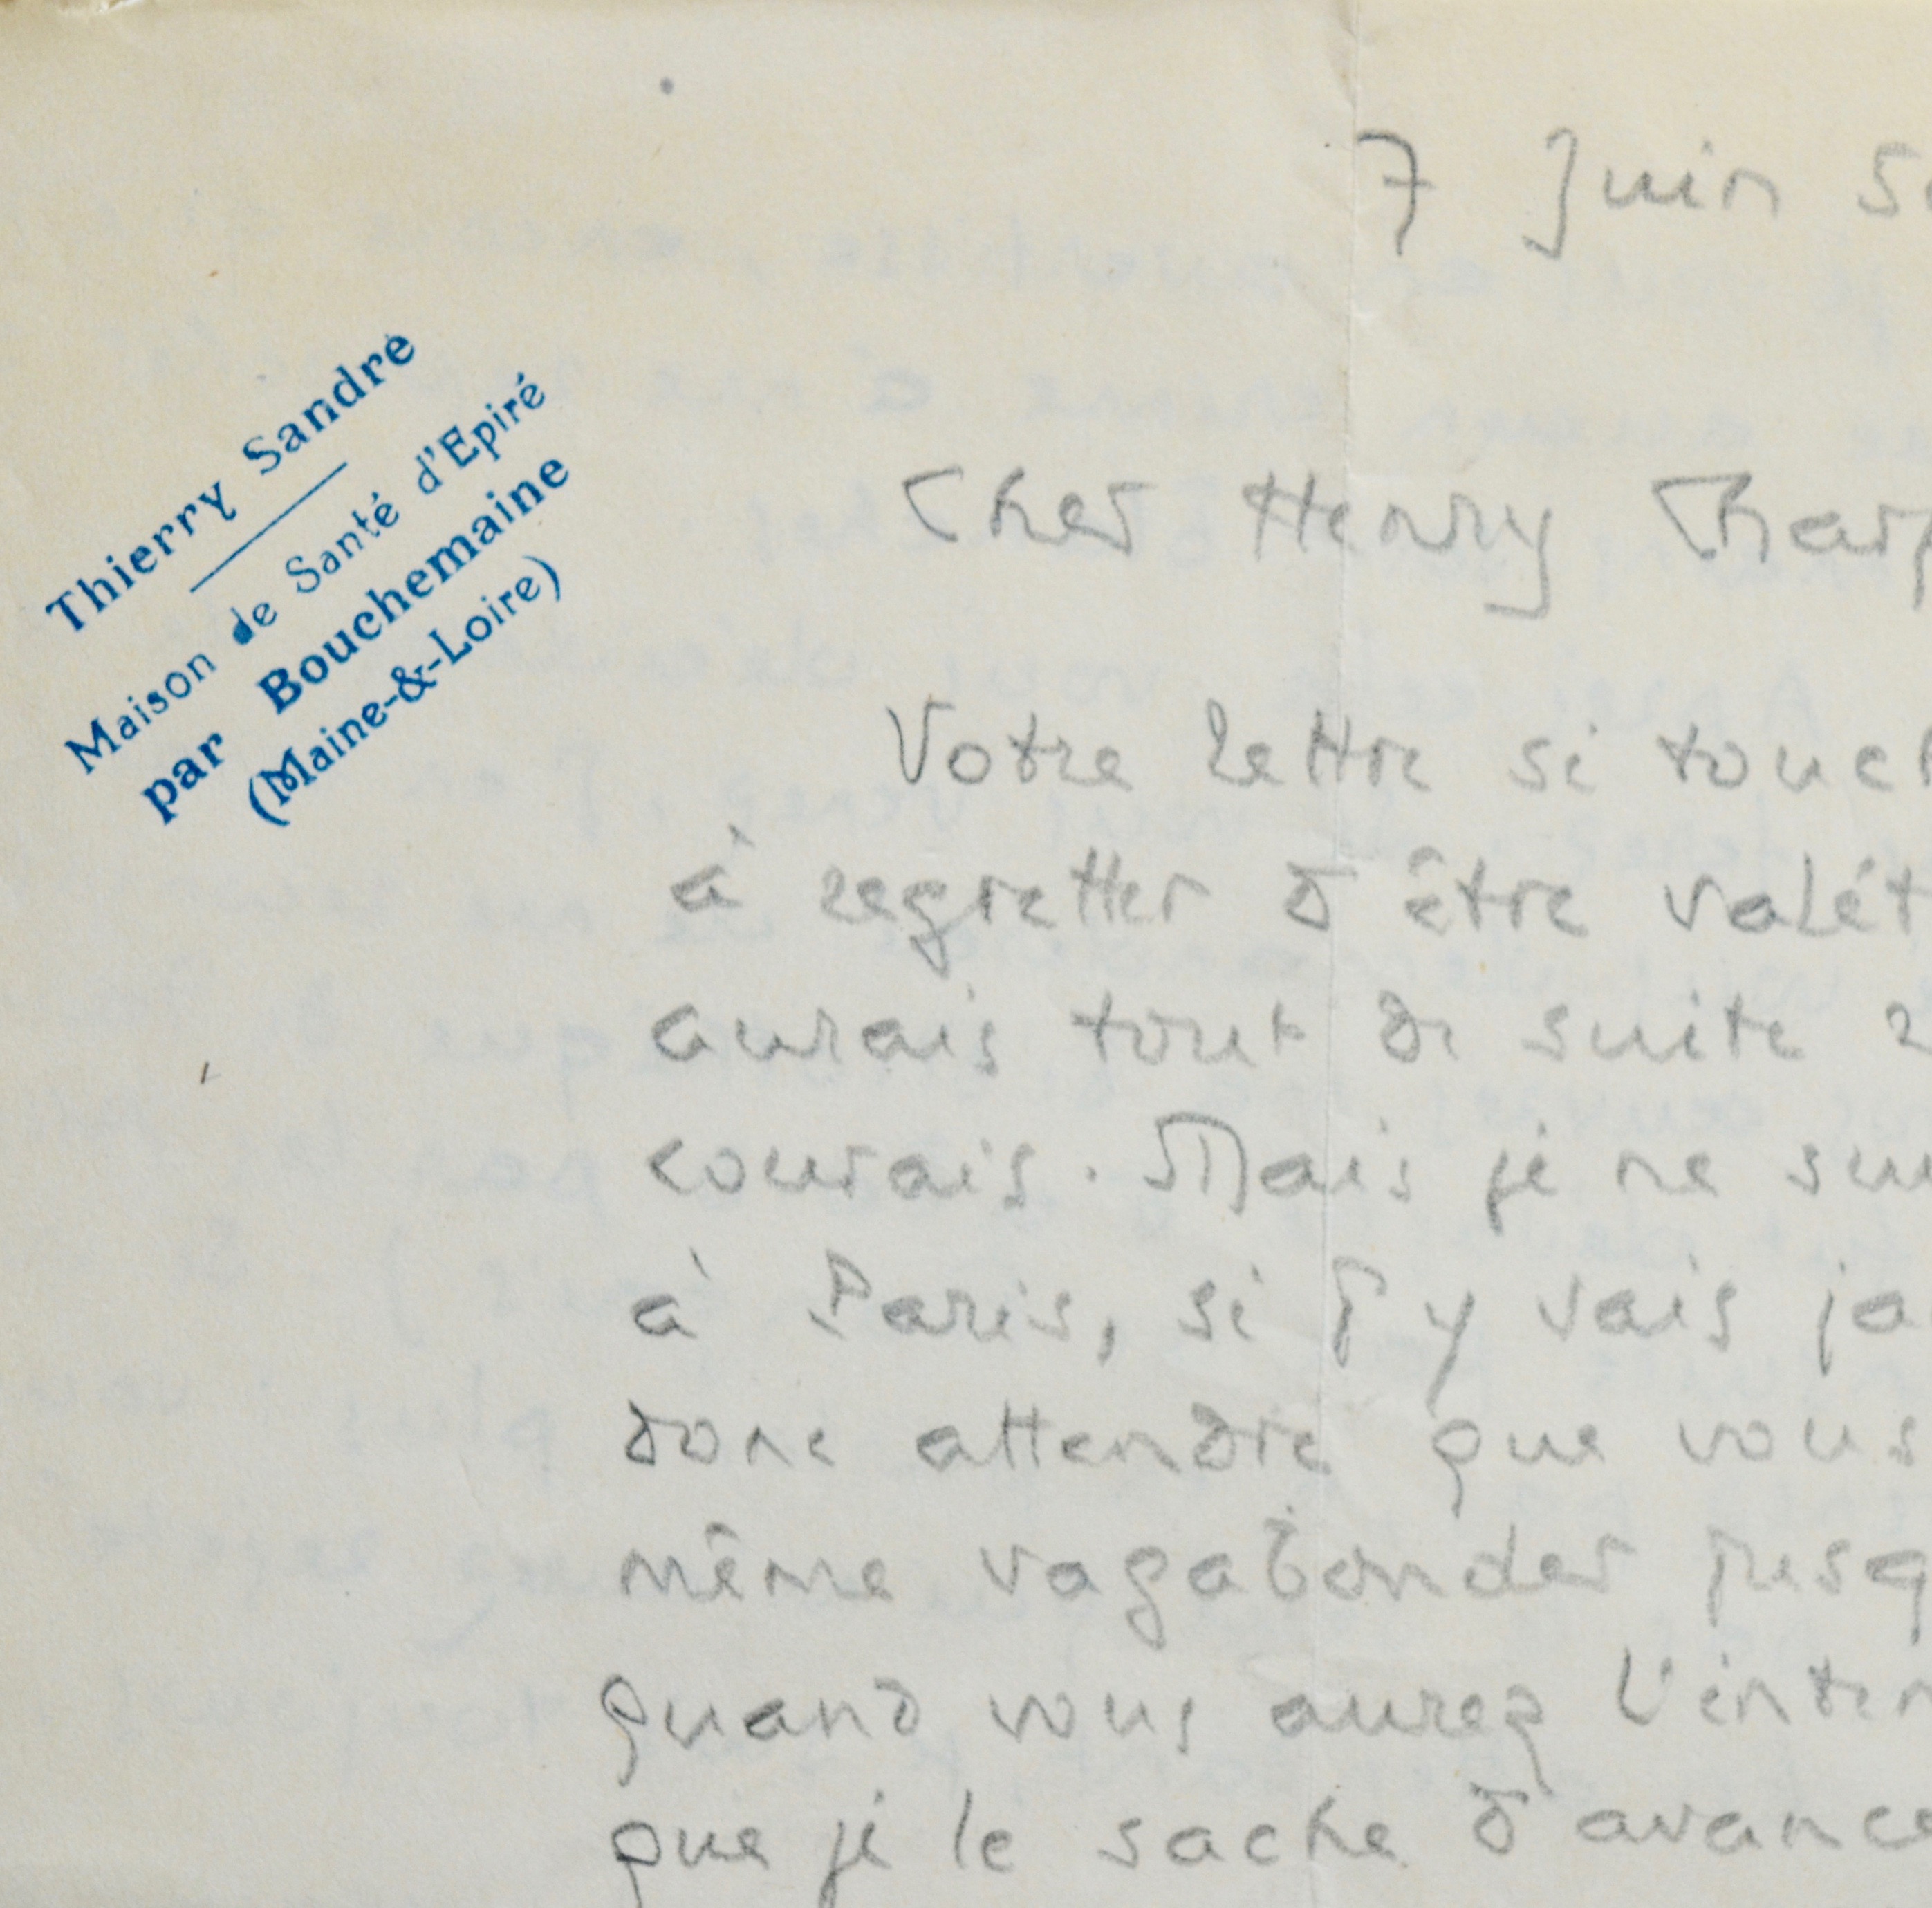 7 Juin 50
Thierry Sandre
Maison de Santé d'Epiré
par Bouchemaine
(Maine-&-Loire)
Cher Henry Charp
Votre lettre si touch
à regretter d'être valét
aurais tout de suite
courais. Mais je ne sui
à Paris, si j'y vais ja
donc attendre que vous
même vagabonder jusq
quand vous aurez l'inten
que je le sache d'avance